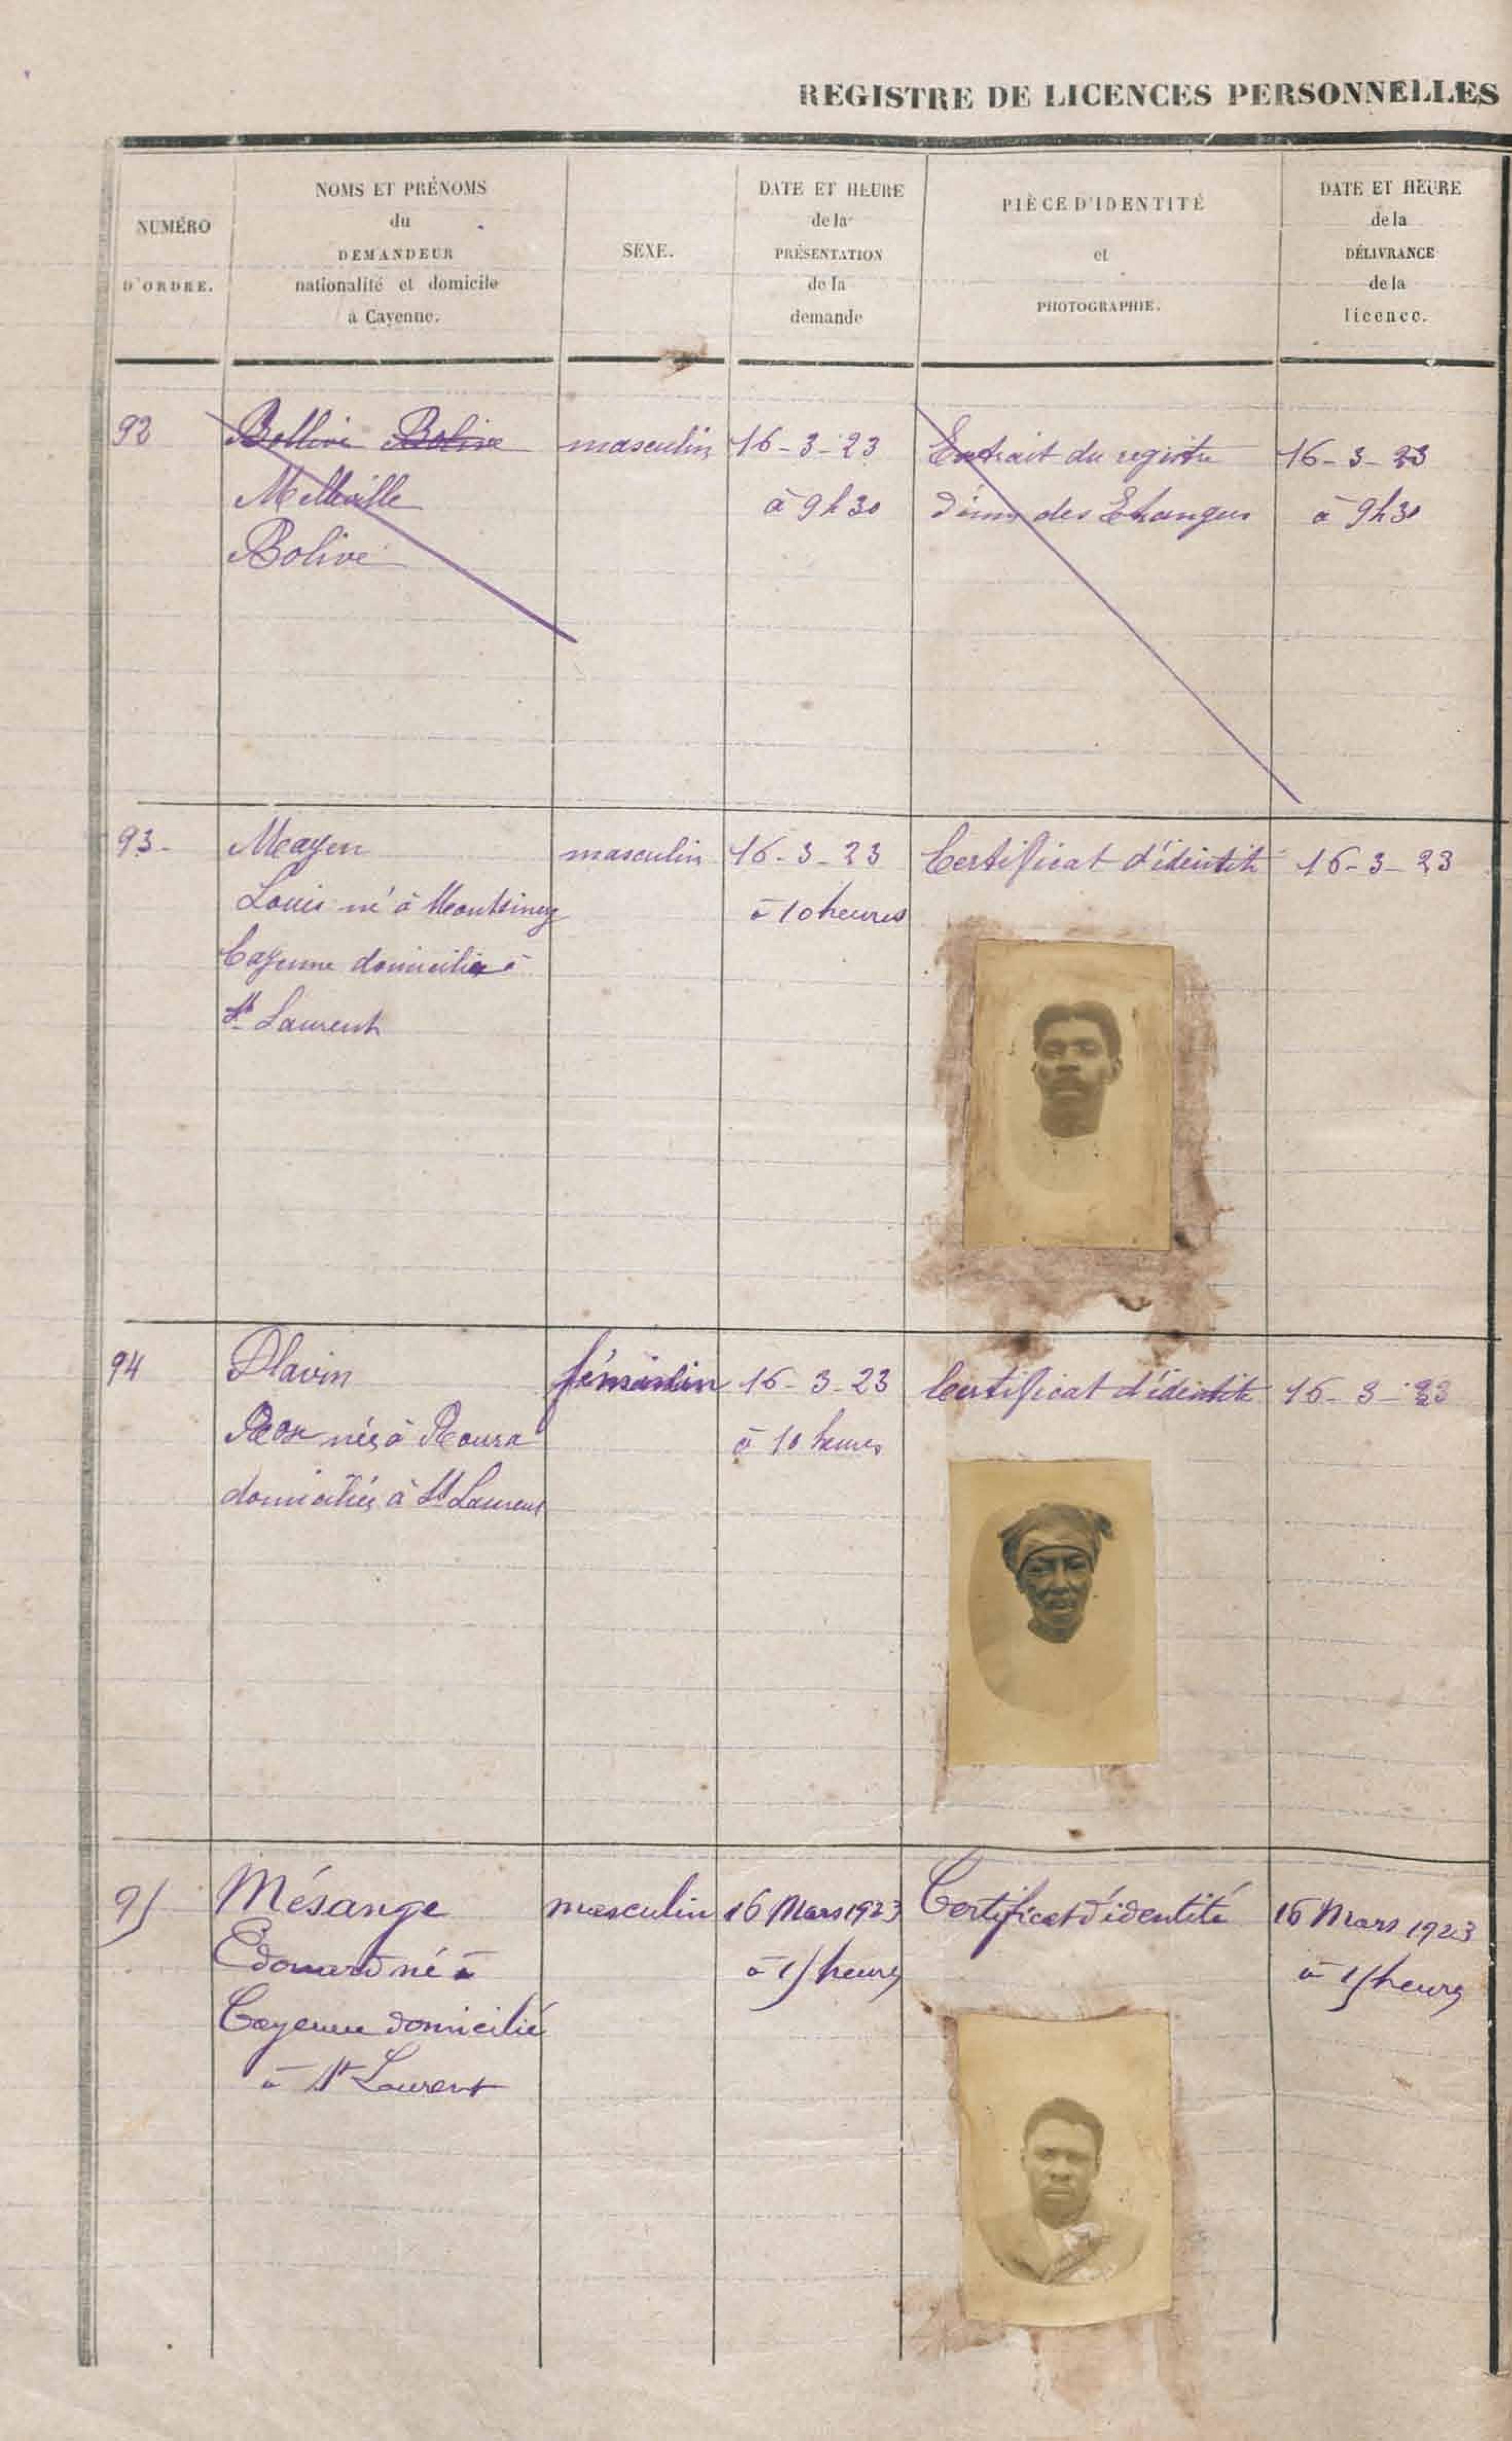 REGISTRE DE LICENCES PERSONNELLES
NUMÉRO
D'ORDRE.
NOMS ET PRÉNOMS
du
DEMANDEUR
nationalité et domicile
à Cayenne.
SEXE.
DATE ET HEURE
de la
PRÉSENTATION
de la
demande
PIÈCE D'IDENTITÉ
et
PHOTOGRAPHIE.
DATE ET HEURE
de la
DÉLIVRANCE
de la
licence.
92
Bollive Bolive
Melleville
Bolive
masculin
16-3-23
à 9h30
Extrait du registre
d'imm des Etrangers
16-3-23
à 9h30
93-
Mayen
Louis né à Montsinery
Cayenne domicilié à
St Laurent
masculin
16-3-23
à 10 heures
Certificat d'identité
16-3-23
94
Plavin
Rose née à Roura
domiciliée à St Laurent
féminin
16-3-23
à 10 heures
Certificat d'identité
16-3-23
95
Mésange
Edouard né à
Cayenne domicilié
à St Laurent
masculin
16 Mars 1923
à 15 heures
Certificat d'identité
16 Mars 1923
à 15 heures